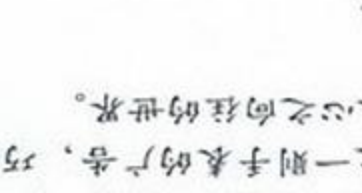 一则手表的广告，巧
心之向往的世界。